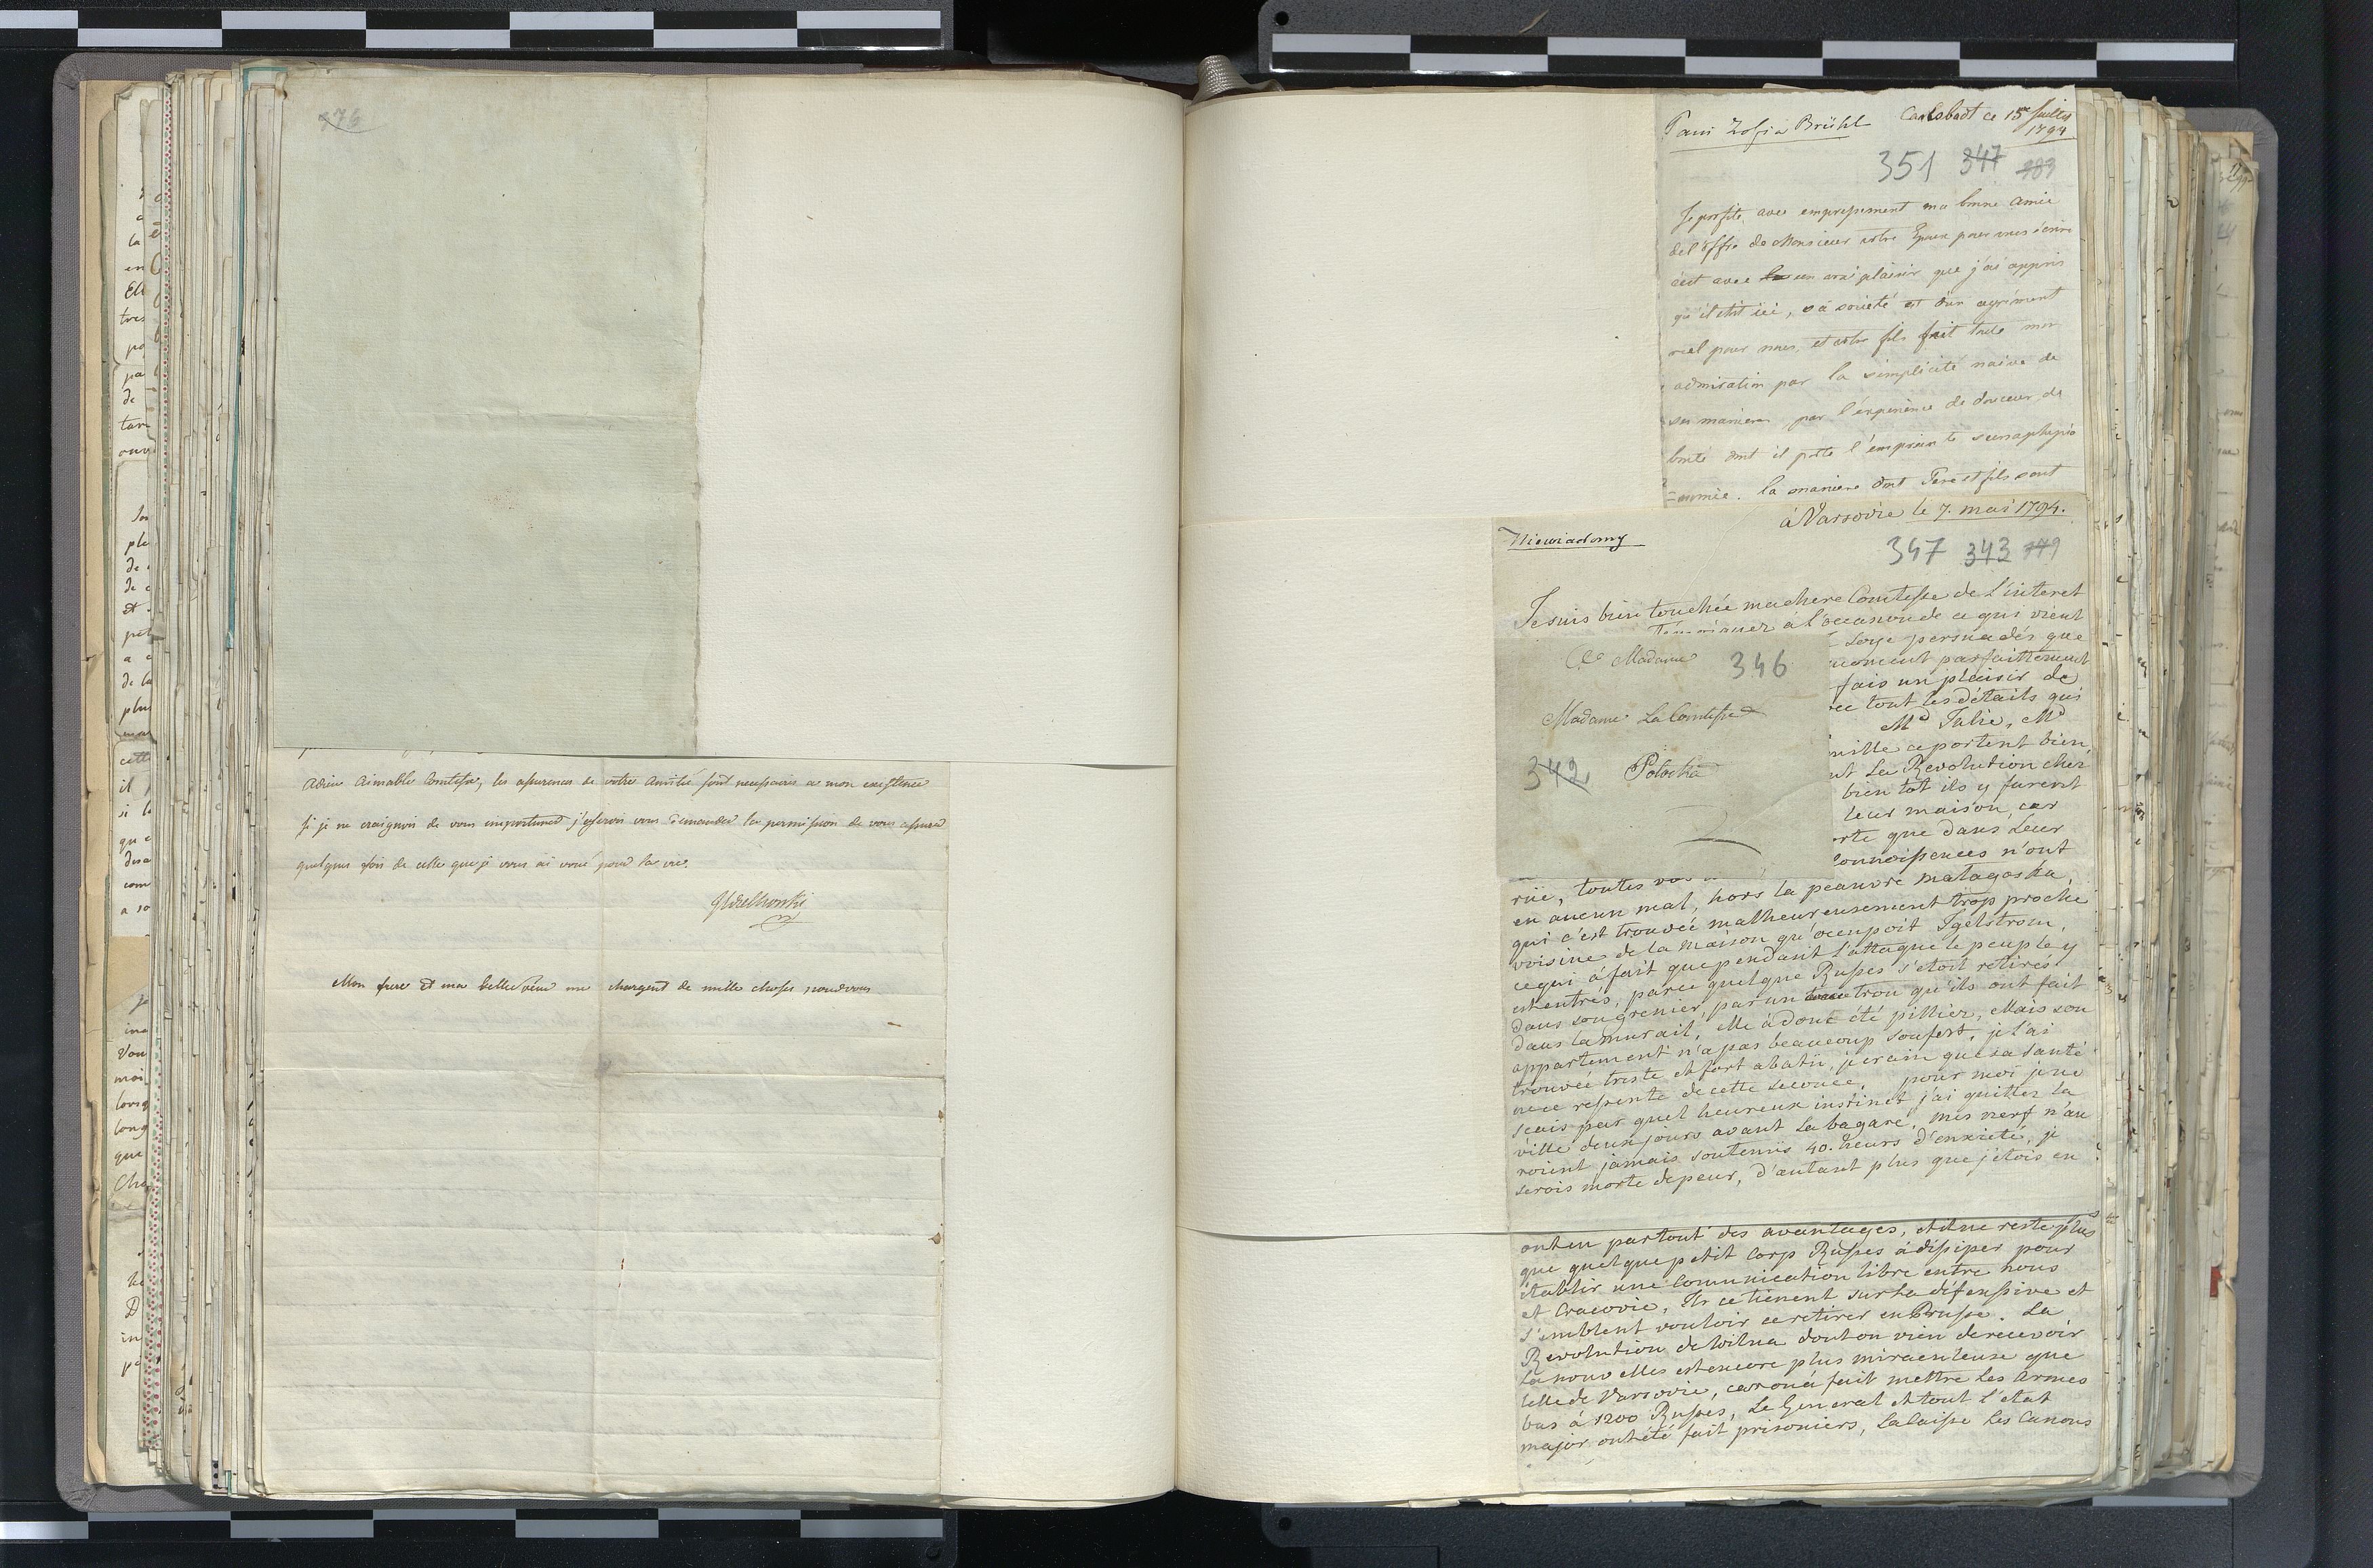 376
Adieu Aimable Comtesse, les assurences de votre Amitié sont necessaires a mon existence
si je ne craignois de vous importuner j'oserois vous demander la permission de vous assurer
quelques fois de celle que je vous ai voué pour la vie.
Mon frere et ma belle Sœur me chargent de mille choses pour vous
Pani Zofia Brühl Carlsbadt ce 15 Juillet
1794
351 347
Je profite avec empressement ma bonne Amie
de l'offre de Monsieur votre Epoux pour vous écrire
c'est avec un vrai plaisir que j'ai appris
qu'il etit ici, sa société est d'un agrément
réel pour nous, et votre fils fait toute mon
admiration par la simplicité naive de
ses manieres par l'expérience de douceur de
bonté dont il porte l'empreinte sur sa phisio
=nomie. la maniere dont Pere et fils sont
à Varsovie le 7. mai 1794.
Niewiadomy
347 343 349
Je suis bien touchée ma chere Comtesse de L'interet
témoigner à l'occasion de ce qui vient
Soye persuadés que
moment parfaittement
fais un plaisir de
ec tout les détails qui
Md Julie, Md
mille ce portent bien,
nt La Revolution cher
bien tot ils y furent
leur maison, car
rte que dans Leur
Connoissences n'ont
A Madame 346
Madame La Comtesse
342 Potocka
rüe, toutes vos
en aucun mal, hors la peauvre matagoska,
qui c'est trouvéé malheureusement trop proche
voisine de la maison qu'ocenpoit Igelstrom,
ce qui à fait que pendant l'attaque le peuple y
est entrés, parce quelque Russes s'etoit retirés
dans son grenier, par un trou qu'ils ont fait
dans la murail, elle à donc été pillier, Mais son
appartement n'a pas beaucoup soufert, je l'ai
trouvée triste et fort abatü, je crain que sa santé
nece resente de cette secouce, pour moi je ne
scais par quel heureux instinct j'ai quitter la
ville deux jours avant La bagare, mes nerf n'au
roient jamais soutenüs 40. heurs d'enxieté, je
serois morte de peur, d'autant plus que j'etois en
ont eu partout des avantages, et il ne reste plus
que quelque petit Corp Russes à dissiper pour
établir une Communication libre entre nous
et Cracovie, Ils ce tiennent sur la défenssive et
s'emblent vouloir ce retirer en Prusse. La
Revolution de Wilna dont on vien de recevoir
La nouvelles est encore plus miraculeuse que
celle de Varsovie, car on à fait mettre Les Armes
bas à 1200 Russes, Le General et tout l'etat
major ont été fait prisoniers, La Caisse Les Canons